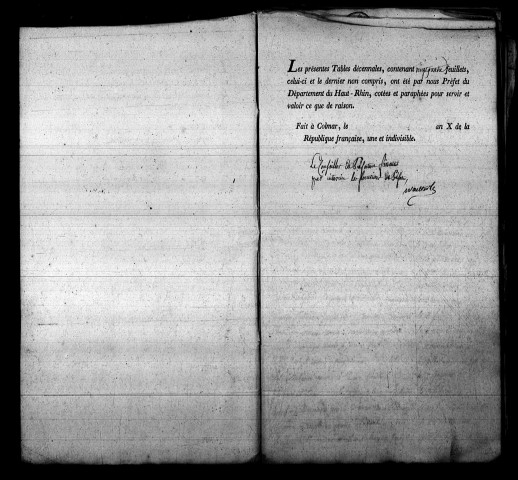 Les présentes Tables décennales, contenant feuillets,
celui-ci et le dernier non compris, ont été par nous Préfet du
Département du Haut-Rhin, cotées et paraphées pour servir et
valoir ce que de raison.
Fait à Colmar, le an X de la
République française, une et indivisible.
Le Conseiller de Préfecture
par interim les fonctions de Préfet,